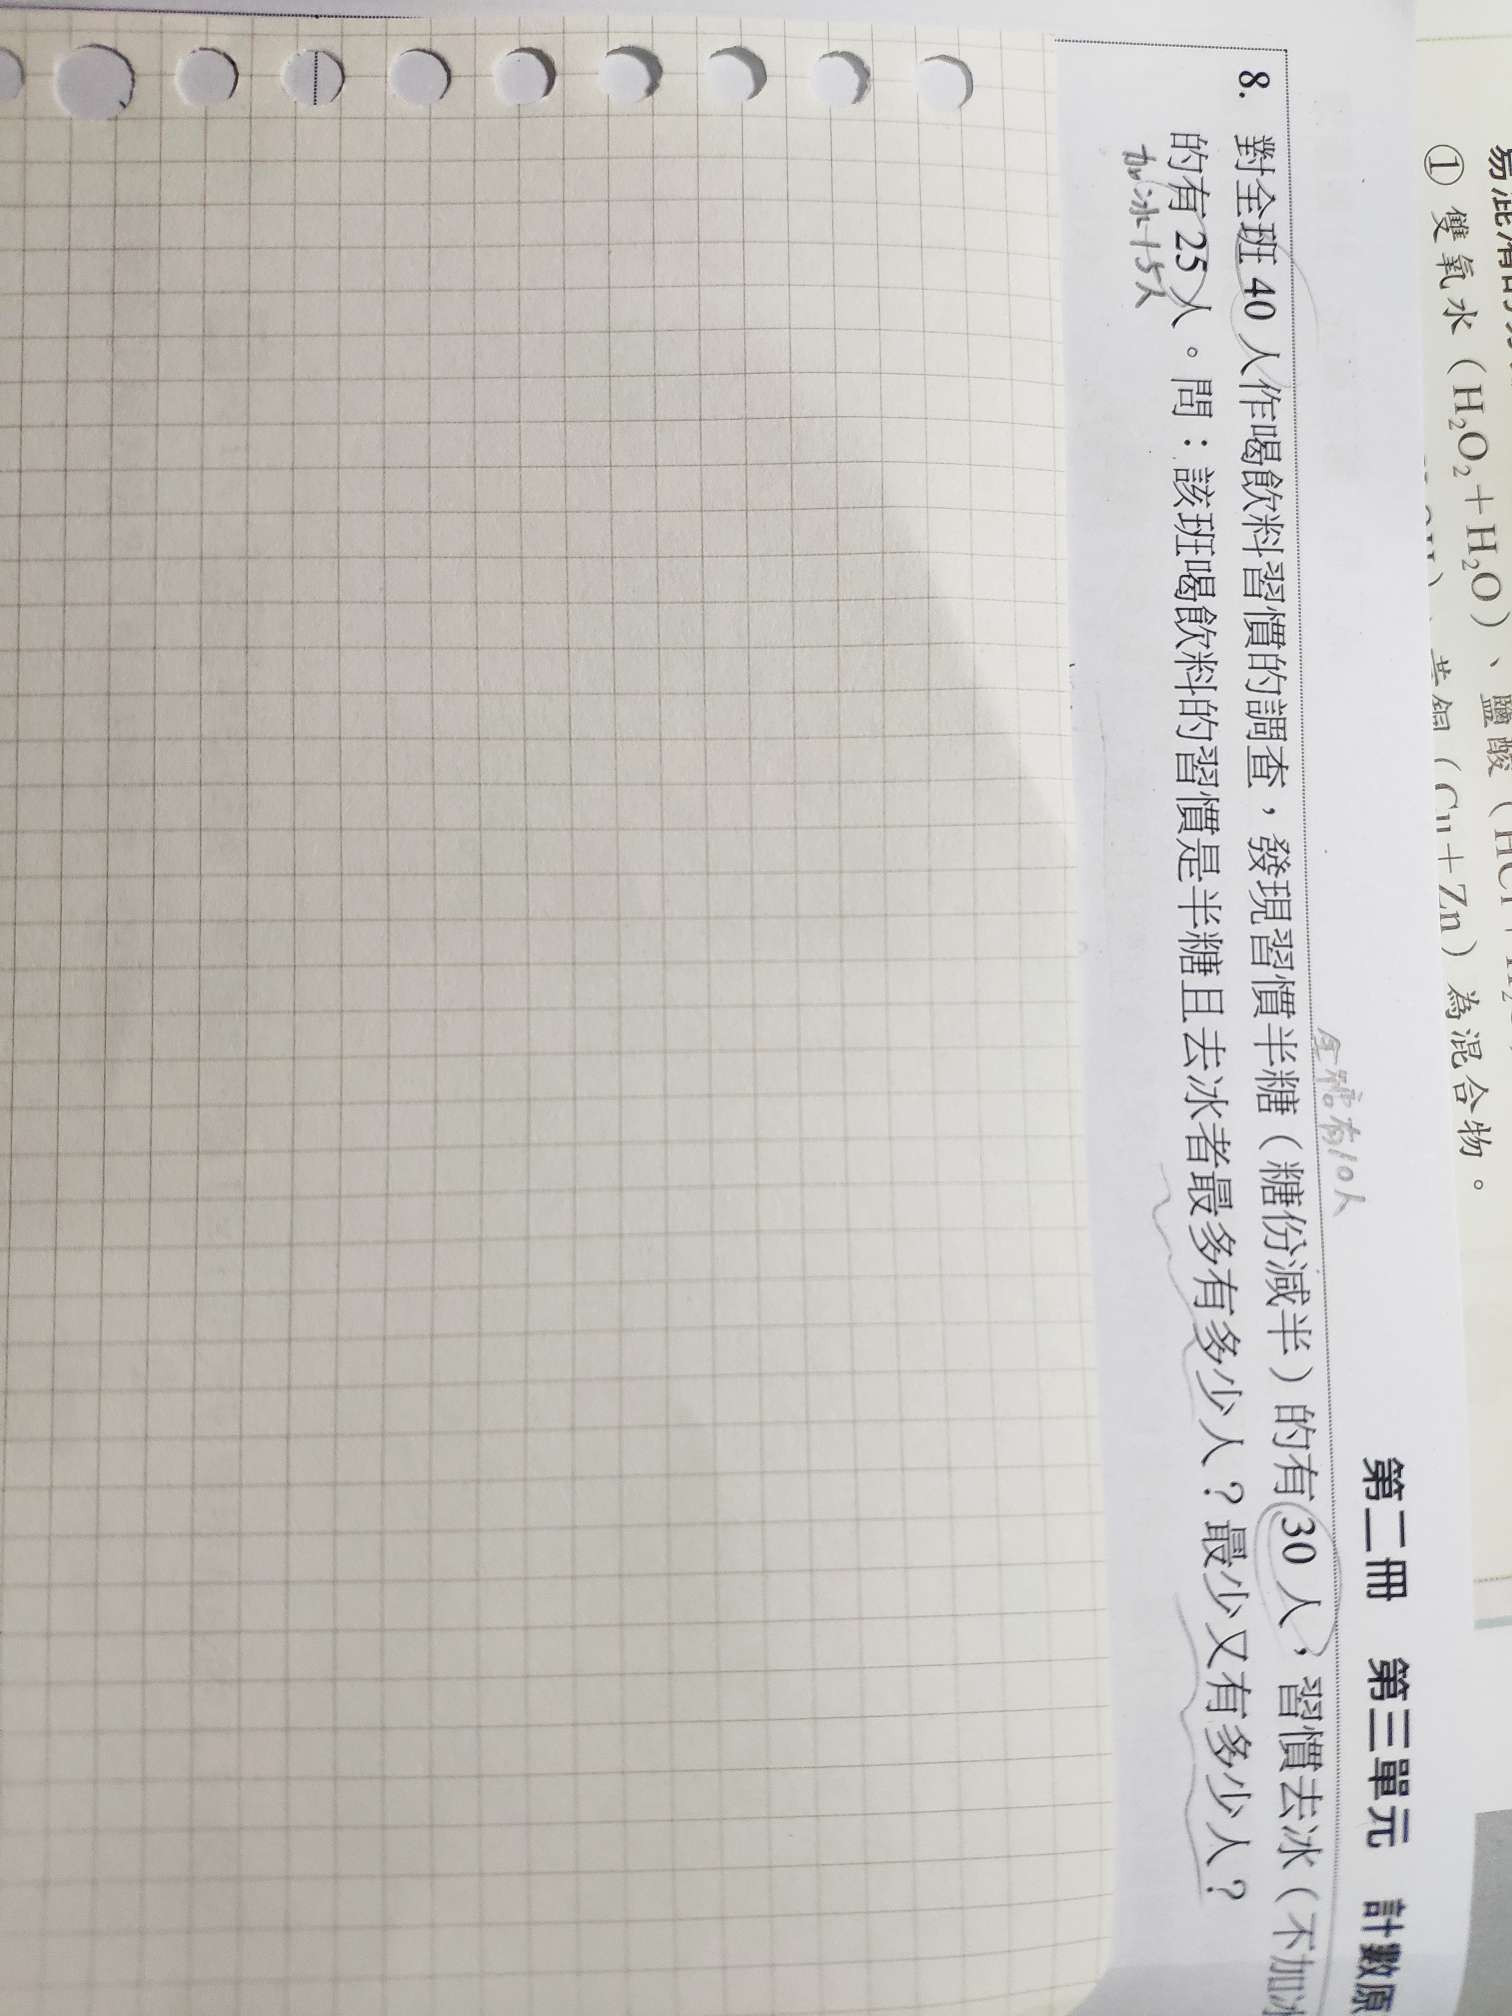 易混淆的
① 雙氧水（H₂O₂＋H₂O）、鹽酸（HCl＋H₂
黃銅（Cu＋Zn）為混合物。
第二冊　第三單元　計數原
全糖有10人
8. 對全班 40 人作喝飲料習慣的調查，發現習慣半糖（糖份減半）的有 30 人，習慣去冰（不加冰
的有 25 人。問：該班喝飲料的習慣是半糖且去冰者最多有多少人？最少又有多少人？
加冰15人